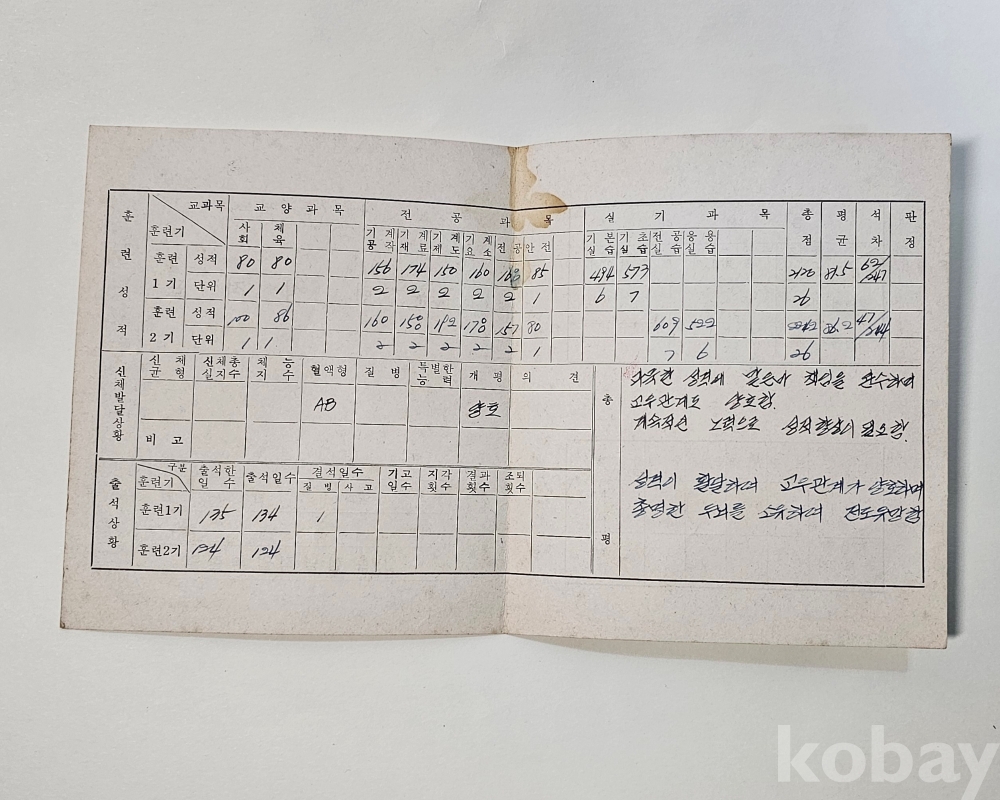 훈련성적
교과목 교양과목 전공과목 실기과목 총점 평균 석차 판정
훈련기 사회 체육 기계공작 기계재료 기계제도 기계요소 전공 안전 기본실습 기초실습 전공실습 응용실습
훈련1기 성적 80 80 156 174 150 160 85 484 573 2120 81.5 62/247
단위 1 1 2 2 2 2 2 1 6 7 26
훈련2기 성적 100 86 160 150 170 157 80 609 522
단위 1 1 2 2 2 2 2 1 7 6 26
신체발달상황
신체균형 신체충실지수 체능지수 혈액형 질병 특별한능력 개평 의견
AB 양호
비고
총평
성격에 맡은바 책임을 완수하며
교우관계도 양호함.
계속적인 노력으로 성적향상이 필요함.
성격이 활달하며 교우관계가 양호하며
총명한 두뇌를 소유하며 전도유망함
출석상황
구분 출석한일수 출석일수 결석일수 기고일수 지각횟수 결과횟수 조퇴횟수
훈련기 질병 사고
훈련1기 135 134 1
훈련2기 124 124
kobay